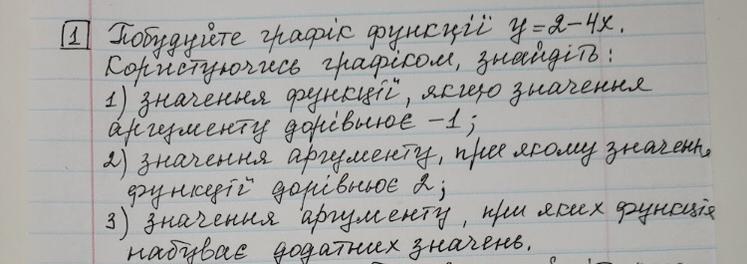 1 Побудуйте графік функції y=2-4x.
Користуючись графіком, знайдіть:
1) значення функції, якщо значення
аргументу дорівнює -1;
2) значення аргументу, при якому значення
функції дорівнює 2;
3) значення аргументу, при яких функція
набуває додатних значень.